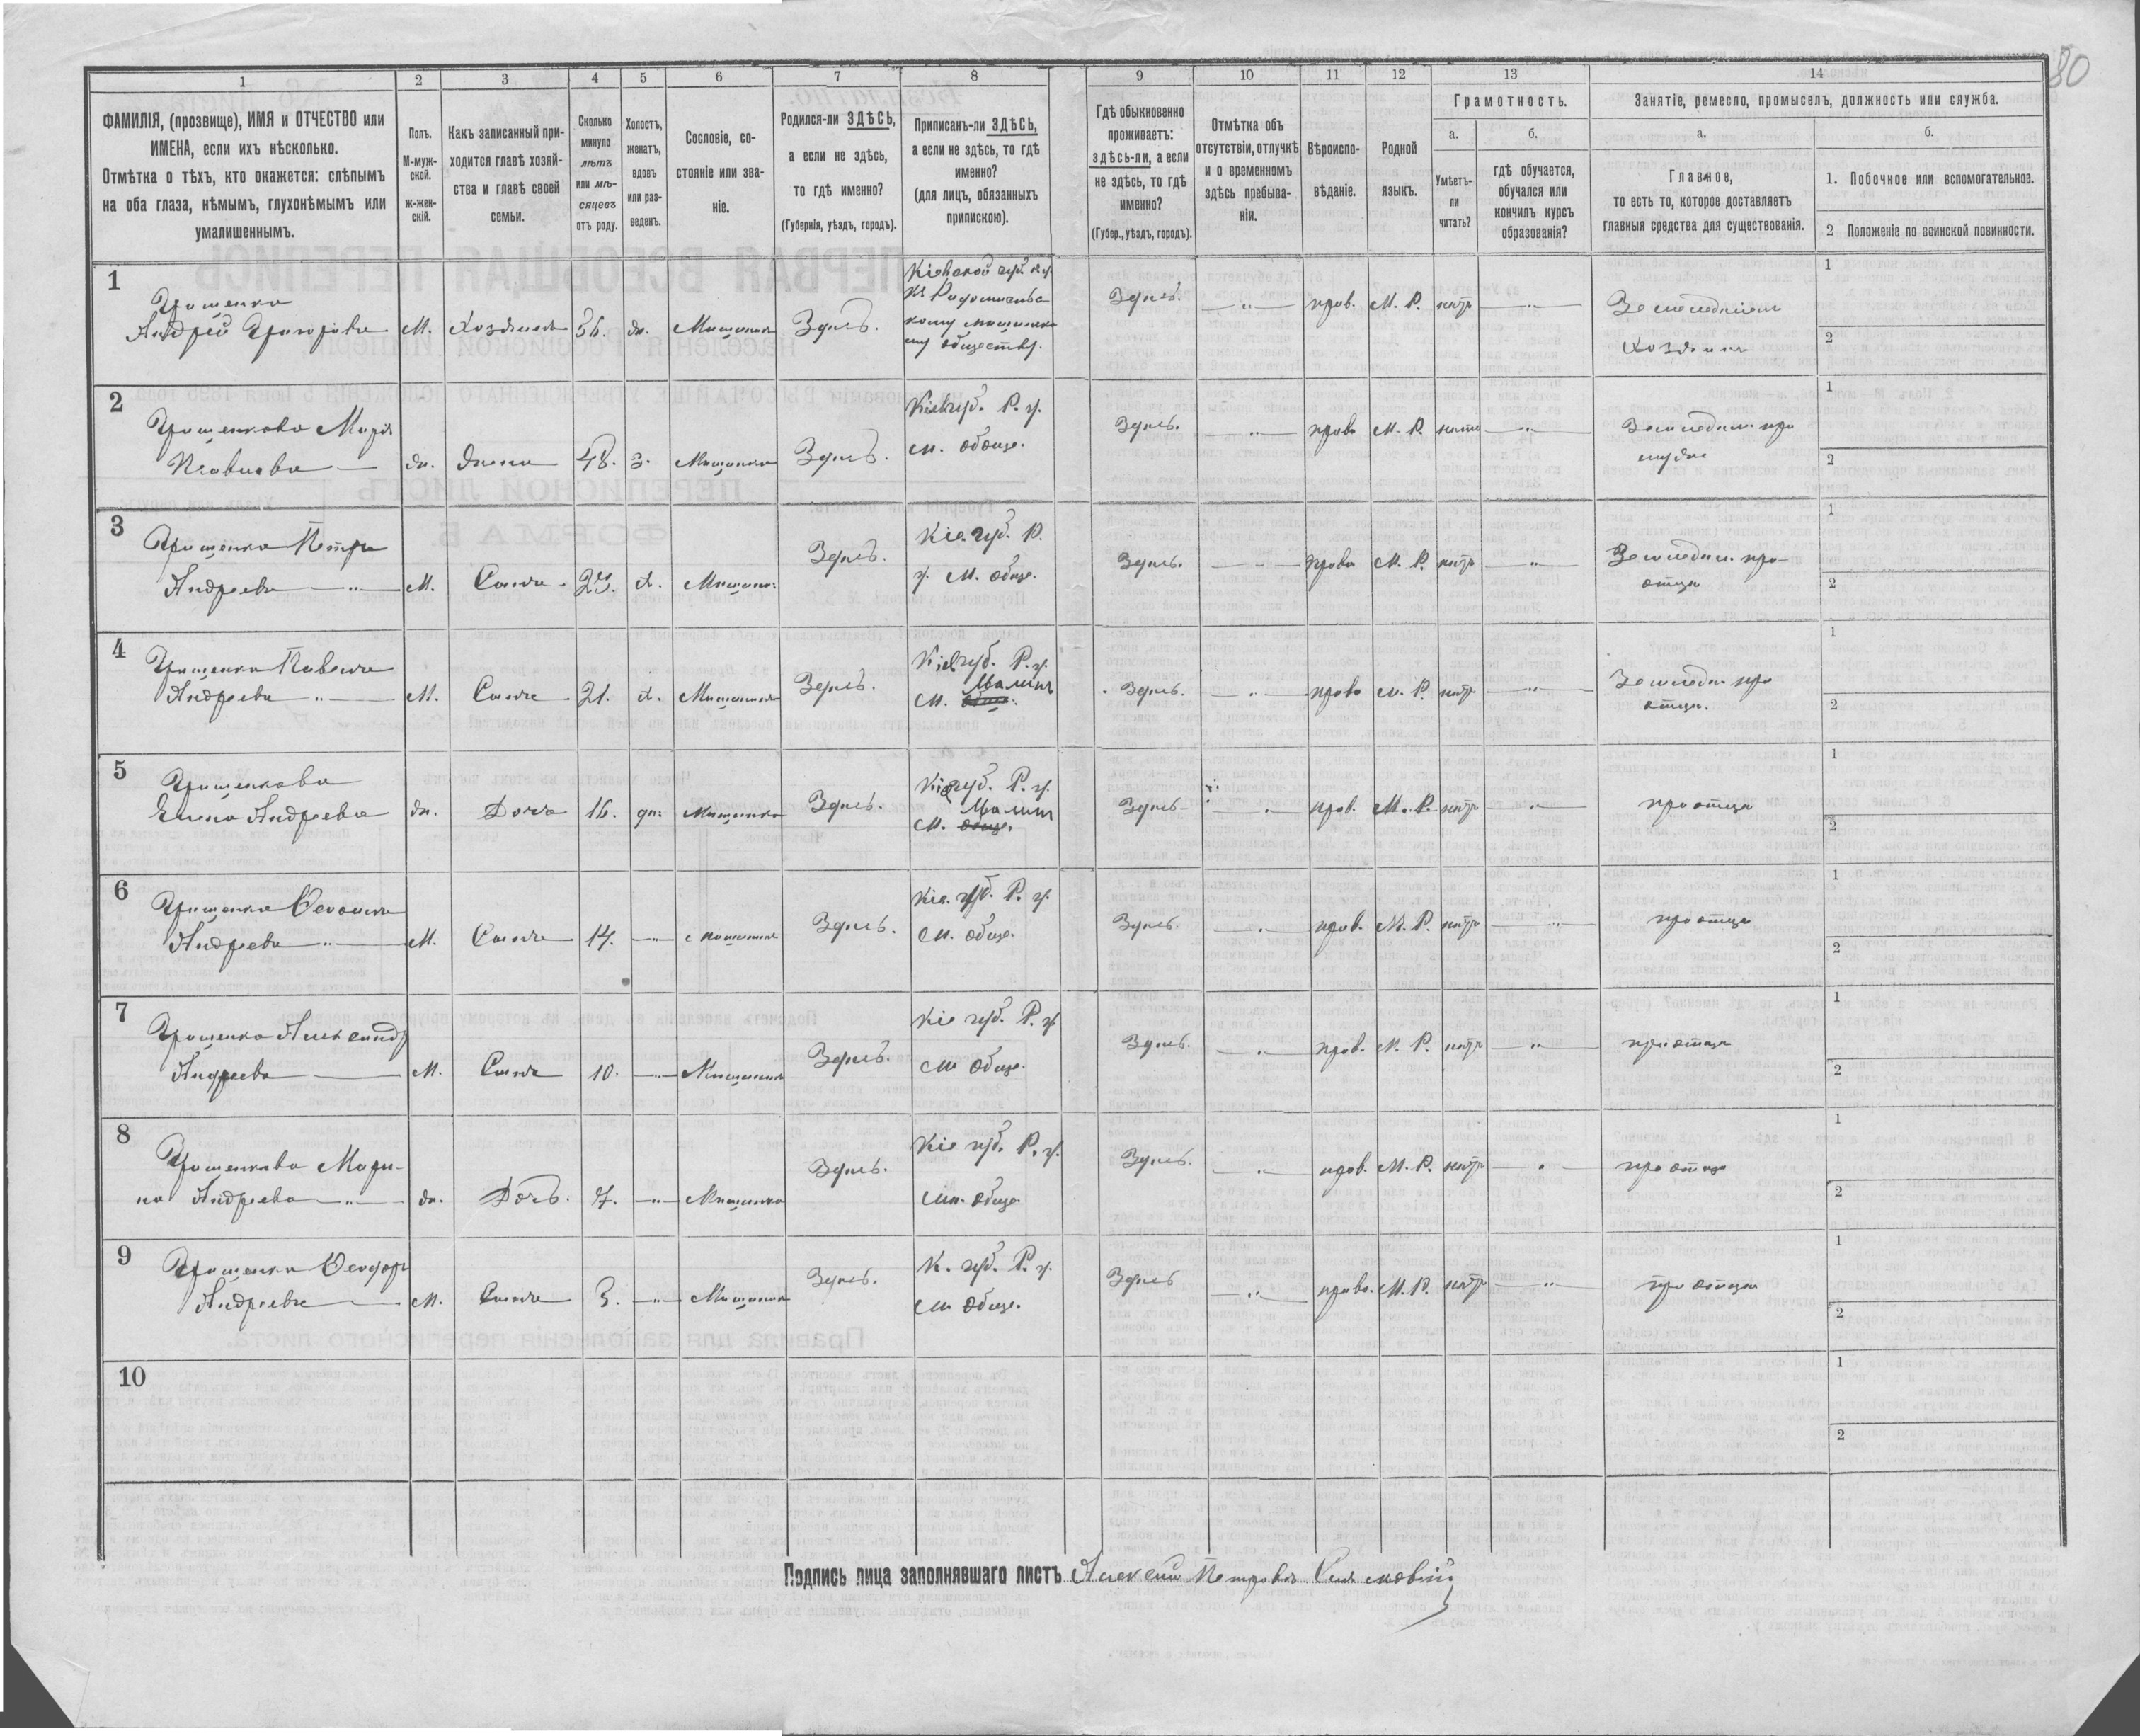 80
1 2 3 4 5 6 7 8 9 10 11 12 13 14
ФАМИЛІЯ, (прозвище), ИМЯ и ОТЧЕСТВО или
ИМЕНА, если ихъ нѣсколько.
Отмѣтка о тѣхъ, кто окажется: слѣпымъ
на оба глаза, нѣмымъ, глухонѣмымъ или
умалишеннымъ.
Полъ.
М-муж-
ской.
Ж-жен-
скій.
Какъ записанный при-
ходится главѣ хозяй-
ства и главѣ своей
семьи.
Сколько
минуло
лѣтъ
или мѣ-
сяцевъ
отъ роду.
Холостъ,
женатъ,
вдовъ
или раз-
веденъ.
Сословіе, со-
стояніе или зва-
ніе.
Родился-ли ЗДѢСЬ,
а если не здѣсь,
то гдѣ именно?
(Губернія, уѣздъ, городъ).
Приписанъ-ли ЗДѢСЬ,
а если не здѣсь, то гдѣ
именно?
(для лицъ, обязанныхъ
припискою).
Гдѣ обыкновенно
проживаетъ:
здѣсь-ли, а если
не здѣсь, то гдѣ
именно?
(Губер., уѣздъ, городъ).
Отмѣтка объ
отсутствіи, отлучкѣ
и о временномъ
здѣсь пребыва-
ніи.
Вѣроиспо-
вѣданіе.
Родной
языкъ.
Грамотность.
а. б.
Умѣетъ-
ли
читать?
гдѣ обучается,
обучался или
кончилъ курсъ
образованія?
Занятіе, ремесло, промыселъ, должность или служба.
а. б.
Главное,
то есть то, которое доставляетъ
главныя средства для существованія.
1. Побочное или вспомогательное.
2 Положеніе по воинской повинности.
1
Грищенко
Андрей Григорьевъ М. Хозяинъ 56. жн. Мѣщанинъ Здѣсь.
Кіевской губ.
Радомысльс
кому мѣщанско
му обществу.
Здѣсь. прав. М. Р. нѣтъ
Земледѣліемъ
Хозяинъ
1
2
2
Грищенкова Марія
жн. жена 48. з. Мѣщанка Здѣсь.
Кіевгуб. Р. у.
м. обще.
Здѣсь. прав. М. Р. нѣтъ
Земледѣл. при
мужѣ
1
2
3
Грищенко Петръ
Андреевъ М. Сынъ 25. х. Мѣщан. Здѣсь.
Кіе. губ. Р.
у. м. обще.
Здѣсь. прав. М. Р. нѣтъ
Земледѣл. при
отцѣ
1
2
4
Грищенко Павелъ
Андреевъ М. Сынъ 21. х. Мѣщанинъ Здѣсь.
Кіевгуб. Р. у.
Малинъ
м. обще.
Здѣсь. прав. М. Р. нѣтъ
Земледѣл. при
отцѣ.
1
2
5
Грищенкова
Елена Андреева жн. Дочь 16. дѣ. Мѣщанка Здѣсь.
Кіевгуб. Р. у.
Малин
м. обще.
Здѣсь прав. М. Р. нѣтъ при отцѣ
1
2
6
Грищенко
Андреевъ М. Сынъ 14. Мѣщанинъ Здѣсь.
Кіе. губ. Р. у.
м. обще.
Здѣсь. прав. М. Р. нѣтъ при отцѣ
1
2
7
Грищенко Александръ
Андреевъ М. Сынъ 10. Мѣщанинъ Здѣсь.
Кіе губ. Р. у.
м. обще.
Здѣсь. прав. М. Р. нѣтъ при отцѣ
1
2
8
Грищенкова Мари-
на Андреева жн. Дочь. 7. Мѣщанка Здѣсь.
Кіе губ. Р. у.
мѣ. обще.
Здѣсь. прав. М. Р. нѣтъ при отцѣ
1
2
9
Грищенко Ѳеодоръ
Андреевъ М. Сынъ 3. Мѣщанинъ Здѣсь.
К. губ. Р. у.
м. обще.
Здѣсь прав. М. Р. нѣтъ при отцѣ
1
2
10
1
2
Подпись лица заполнявшаго листъ Алексѣй Петровъ